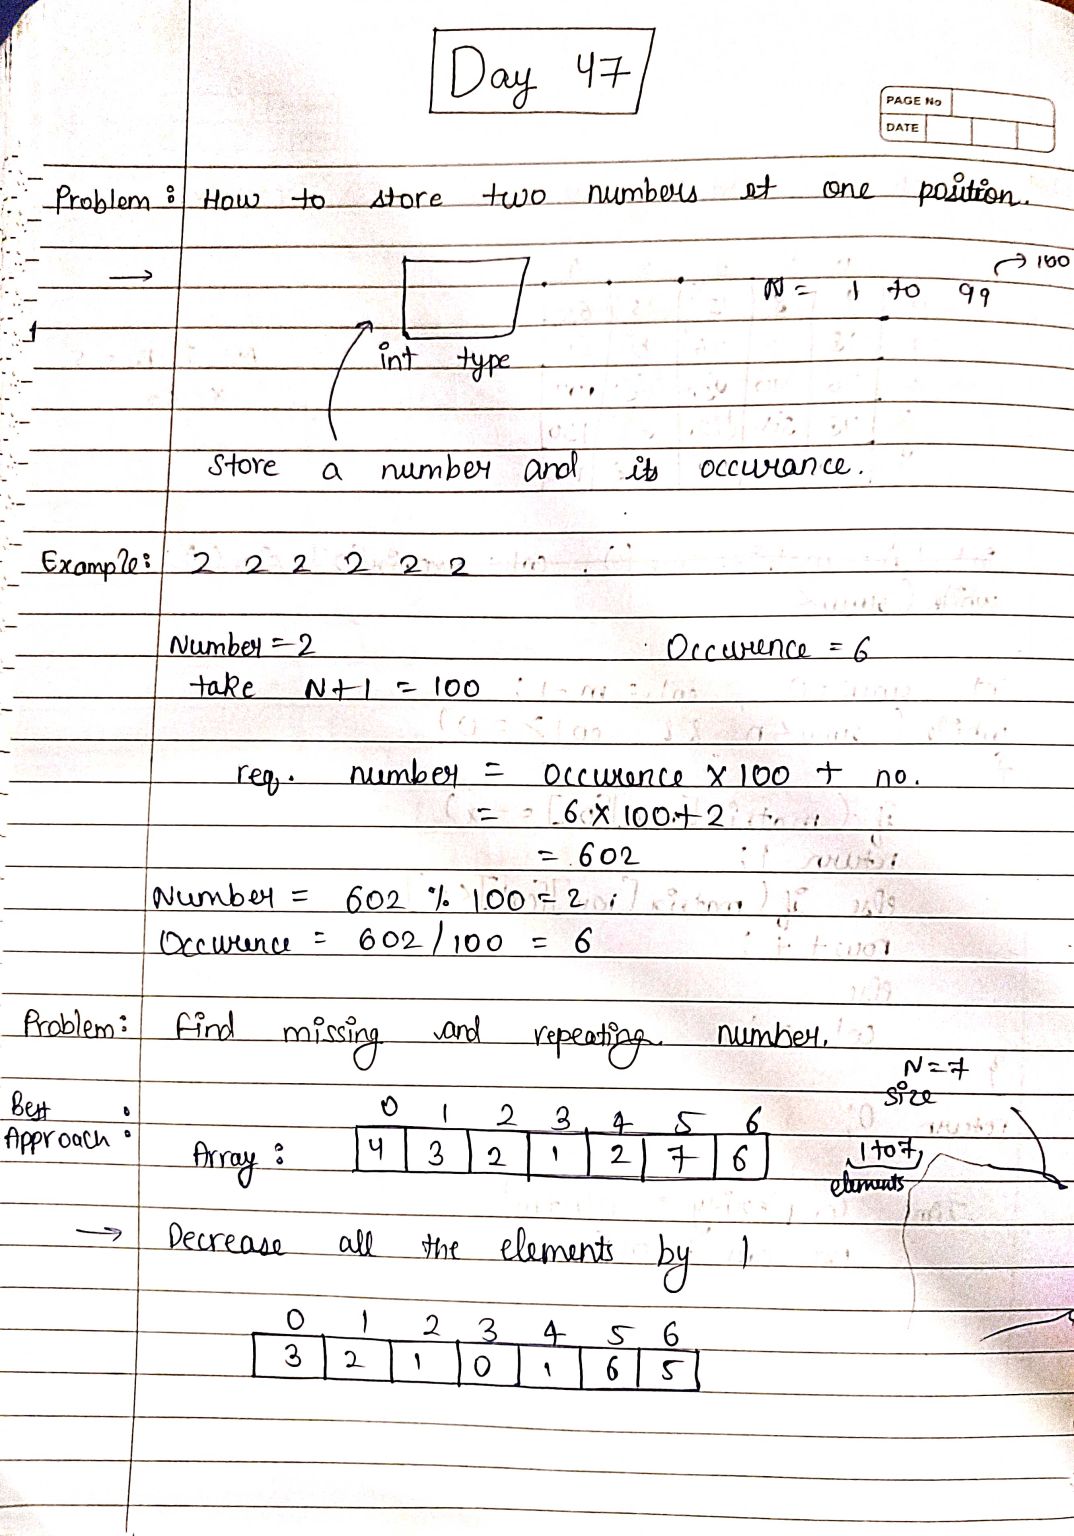 Day 47
PAGE No
DATE
Problem: How to store two numbers at one position.
→ N = 1 to 99 → 100
int type
Store a number and its occurance.
Example: 2 2 2 2 2 2
Number = 2 Occurence = 6
take N+1 = 100
req. number = occurence × 100 + no.
= 6 × 100 + 2
= 602
Number = 602 % 100 = 2
Occurence = 602 / 100 = 6
Problem: find missing and repeating number.
N = 7
size
Best
Approach:
0 1 2 3 4 5 6
Array: 4 3 2 1 2 7 6
1 to 7
elements
→ Decrease all the elements by 1
0 1 2 3 4 5 6
3 2 1 0 1 6 5